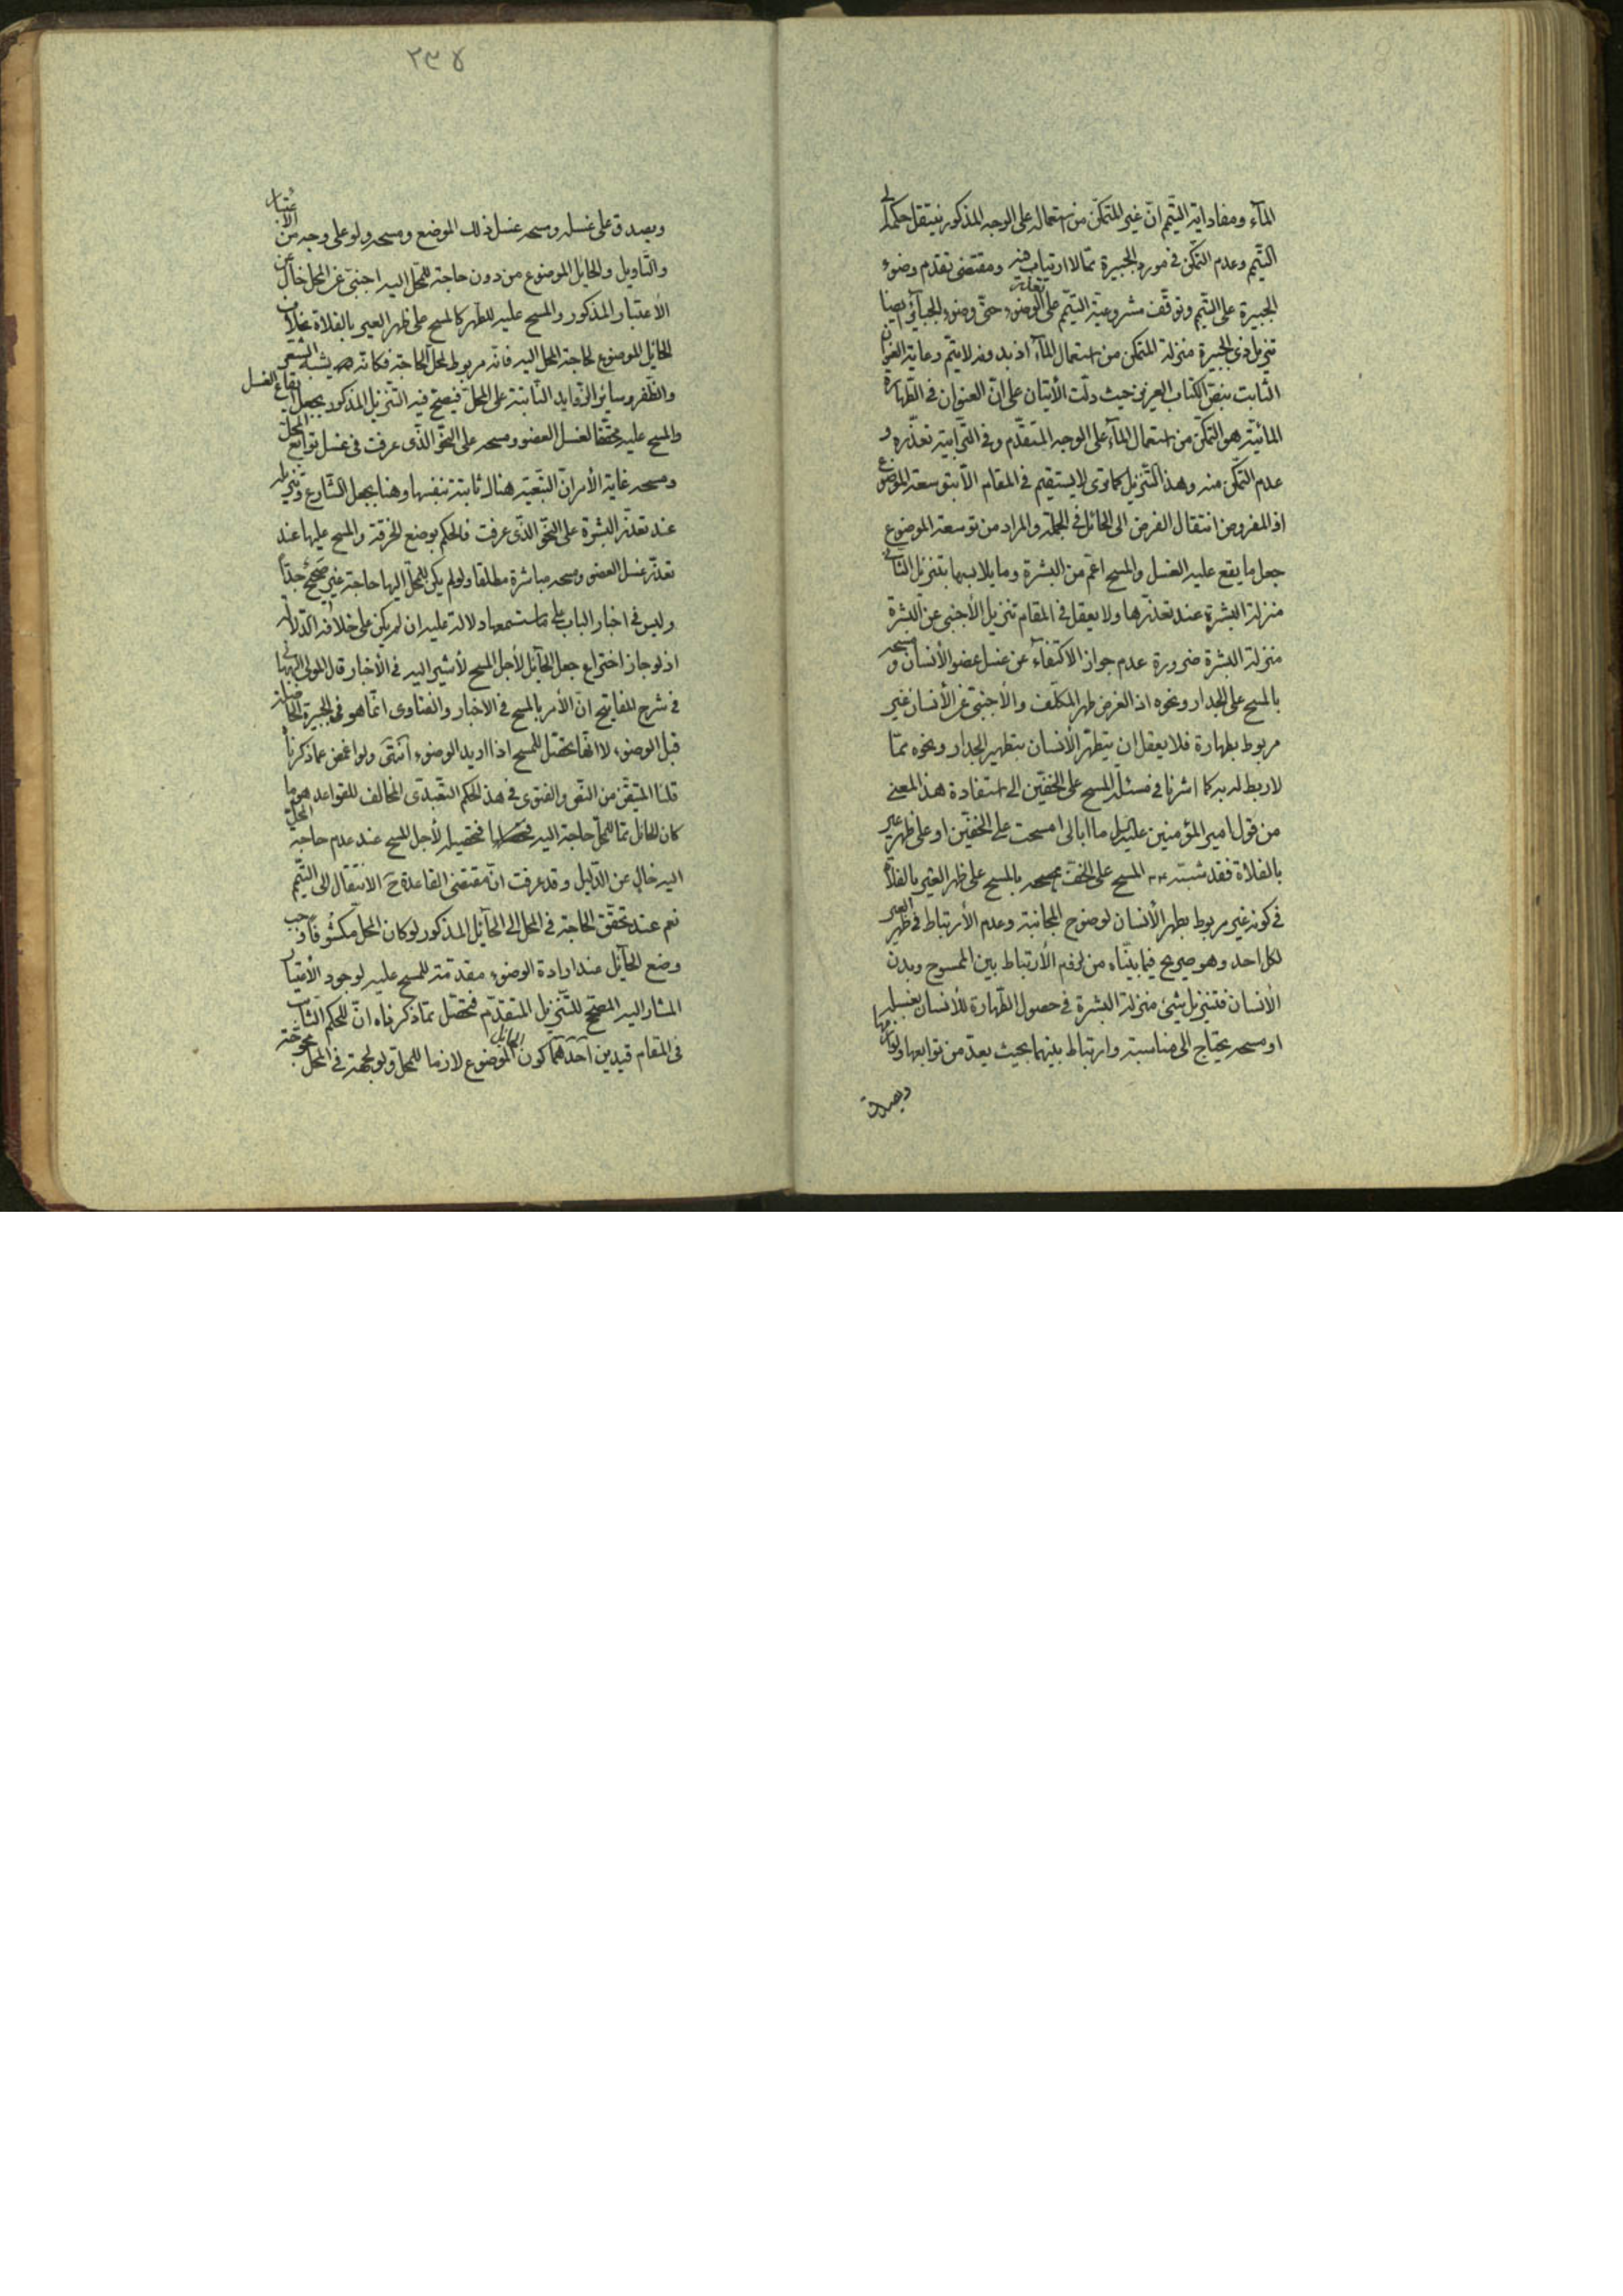 المآء ومفاد اية التيمم ان غير المتمكن من استعماله على الوجه المذكور ينتقل حكمه الى
التيمم وعدم التمكن في مورد الجبيرة مما لا ارتياب فيه ومقتضى تقدم وضوء
الجبيرة على التيمم وتوقف مشروعية التيمم على تعذر الوضوء حتى وضوء الجبآئر ايضا
تنزيل ذى الجبيرة منزلة المتمكن من استعمال المآء اذ بدونه لا يتم رعاية العنوان
الثابت بنص الكتاب العزيز حيث دلت الأيتان على ان العنوان في الطهارة
المائية هو التمكن من استعمال المآء على الوجه المتقدم وفي الترابية تعذره و
عدم التمكن منه وهذا التنزيل كما ترى لا يستقيم في المقام الا بتوسعة الموضوع
اذ المفروض انتقال الفرض الى الحائل في الجملة والمراد من توسعة الموضوع
جعل ما يقع عليه الغسل والمسح اعم من البشرة وما يلابسها بتنزيل الثاني
منزلة البشرة عند تعذرها ولا يعقل في المقام تنزيل الأجنبى عن البشرة
منزلة البشرة ضرورة عدم جواز الاكتفآء عن غسل عضو الأنسان و مسحه
بالمسح على الجدار ونحوه اذ الغرض طهر المكلف والأجنبى عن الأنسان غير
مربوط بطهارة فلا يعقل ان يتطهر الأنسان بتطهير الجدار ونحوه مما
لا ربط له به كما اشرنا في مسئلة المسح على الخفين الى استفادة هذا المعنى
من قول امير المؤمنين عليه السلم ما ابالى امسحت على الخفين او على ظهر عير
بالفلاة فقد شبه المسح على الخف بالمسح على ظهر العير بالفلاة
في كونه غير مربوط بطهر الأنسان لوضوح المجانبة وعدم الأرتباط في ظهر العير
لكل احد وهو صريح فيما بيناه من لزوم الأرتباط بين الممسوح وبدن
الأنسان فتنزيل شىء منزلة البشرة في حصول الطهارة للأنسان بغسله
او مسحه يحتاج الى مناسبة وارتباط بينهما بحيث يعد من توابعها ولوازمها
ويصدق
٢٣٨
ويصدق على غسله ومسحه غسل ذلك الموضع ومسحه ولو على وجه من الأعتبار
والتاويل والحايل الموضوع من دون حاجة للمحل اليه اجنبى عن المحل خال عن
الأعتبار المذكور والمسح عليه للطهر كالمسح على ظهر العير بالفلاة بخلاف
الحائل الموضوع لحاجة المحل اليه فانه مربوط بمحل الحاجة فكانه يشبه الشعر
والظفر وسائر الزوايد الثابتة على المحل فيصح فيه التنزيل المذكور بجعل ايقاع الغسل
والمسح عليه محققا لغسل العضو ومسحه على النحو الذى عرفت في غسل توابع المحل
ومسحه غاية الأمر ان التبعية هناك ثابتة بنفسها وهنا بجعل الشارع وتنزيله
عند تعذر البشرة على النحو الذى عرفت فالحكم بوضع الخرقة والمسح عليها عند
تعذر غسل العضو ومسحه مباشرة مطلقا ولو لم يكن للمحل اليها حاجة غير صحيح جدا
وليس في اخبار الباب على ما ستسمعها دلالة عليه ان لم يكن على خلافه الدلالة
اذ لو جاز اختراع جعل الحآئل لأجل المسح لأشير اليه في الأخبار قال المولى البهبهانى
في شرح المفاتيح ان الأمر بالمسح في الأخبار والفتاوى انما هو في الجبيرة الحاصلة
قبل الوضوء لا انها تحصل للمسح اذا اريد الوضوء انتهى ولو اغمض عما ذكرناه
قلنا المتيقن من النص والفتوى في هذا الحكم التعبدى المخالف للقواعد هو ما
كان الحائل مما للمحل حاجة اليه فتحصيله لأجل المسح عند عدم حاجة المحل
اليه خال عن الدليل وقد عرفت ان مقتضى القاعدة ح الانتقال الى التيمم
نعم عند تحقق الحاجة في المحل الى الحآئل المذكور لو كان المحل مكشوفا وجب
وضع الحآئل عند ارادة الوضوء مقدمة للمسح عليه لوجود الأعتبار
المشار اليه المصحح للتنزيل المتقدم فتحصل مما ذكرناه ان للحكم الثابت
في المقام قيدين احدهما كون الحائل الموضوع لازما للمحل ولو لجهة في المحل محوجة